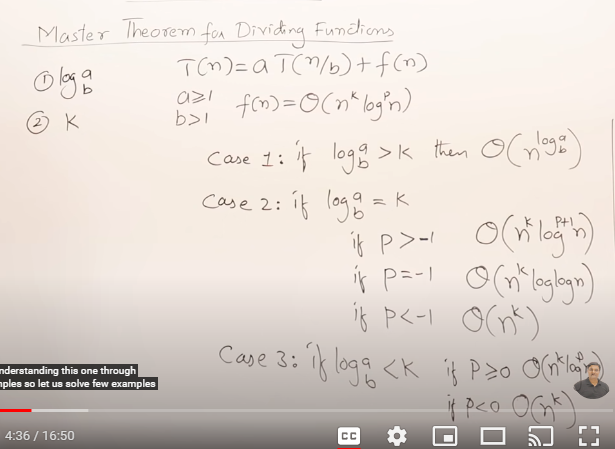 Master Theorem for Dividing Functions
① log_b^a T(n) = a T(n/b) + f(n)
② K a ≥ 1 f(n) = O(n^k log^p n)
b > 1
Case 1: if log_b^a > K then O(n^(log_b^a))
Case 2: if log_b^a = K
if P > -1 O(n^k log^(P+1) n)
if P = -1 O(n^k loglogn)
if P < -1 O(n^k)
Case 3: if log_b^a < K if P ≥ 0 O(n^k log^p n)
if P < 0 O(n^k)
nderstanding this one through
ples so let us solve few examples
4:36 / 16:50
CC